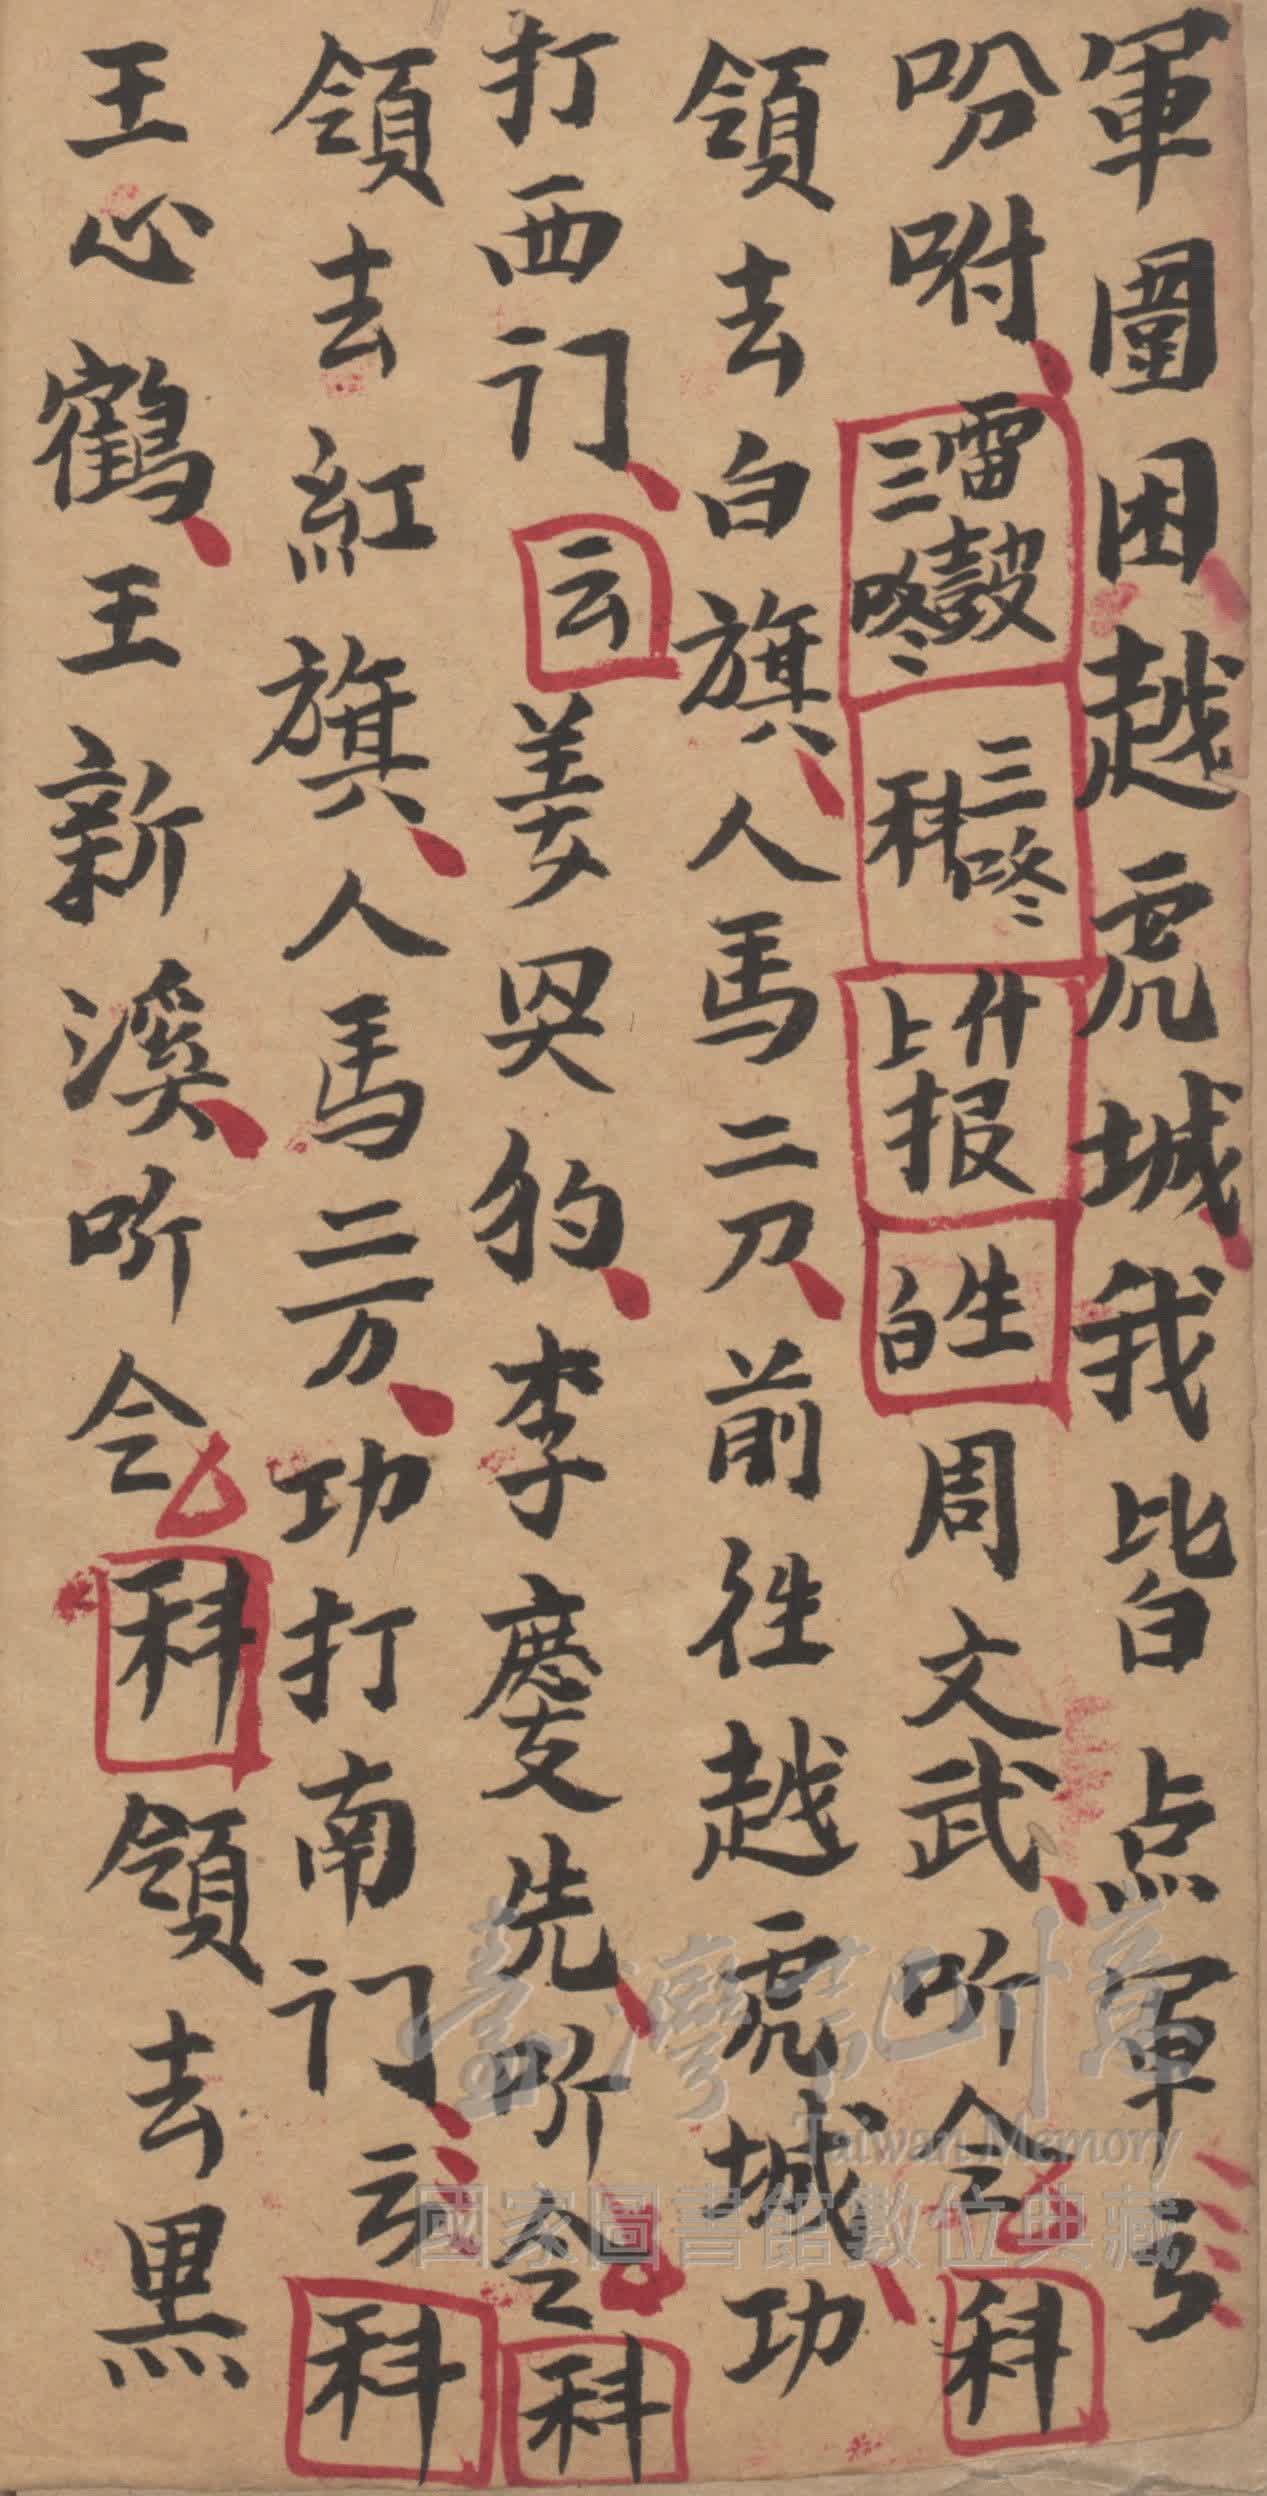 軍圍困越虎城我皆点軍兮
吩咐雷鼓三咚〻三咚〻科什上报生白周文武听令科
領去白旗人馬二刀前往越虎城功
打西门云姜興豹李慶先听令科
領去紅旗人馬二万功打南门云科
王心鶴王新溪听令科領去黑
Taiwan Memory
國家圖書館數位典藏